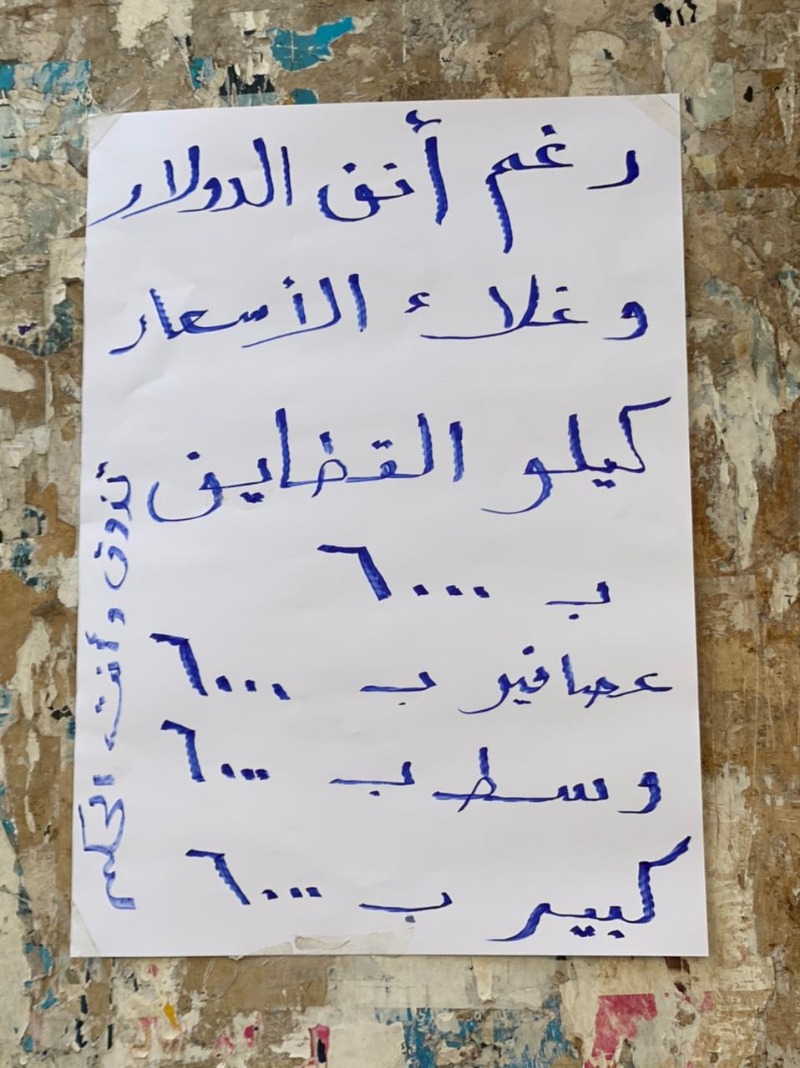 رغم أنف الدولار
وغلاء الأسعار
كيلو القضايف
ب ٦٠٠٠
عصافير ب ٦٠٠٠
وسط ب ٦٠٠٠
كبير ب ٦٠٠٠
تذوق وأنت الحكم